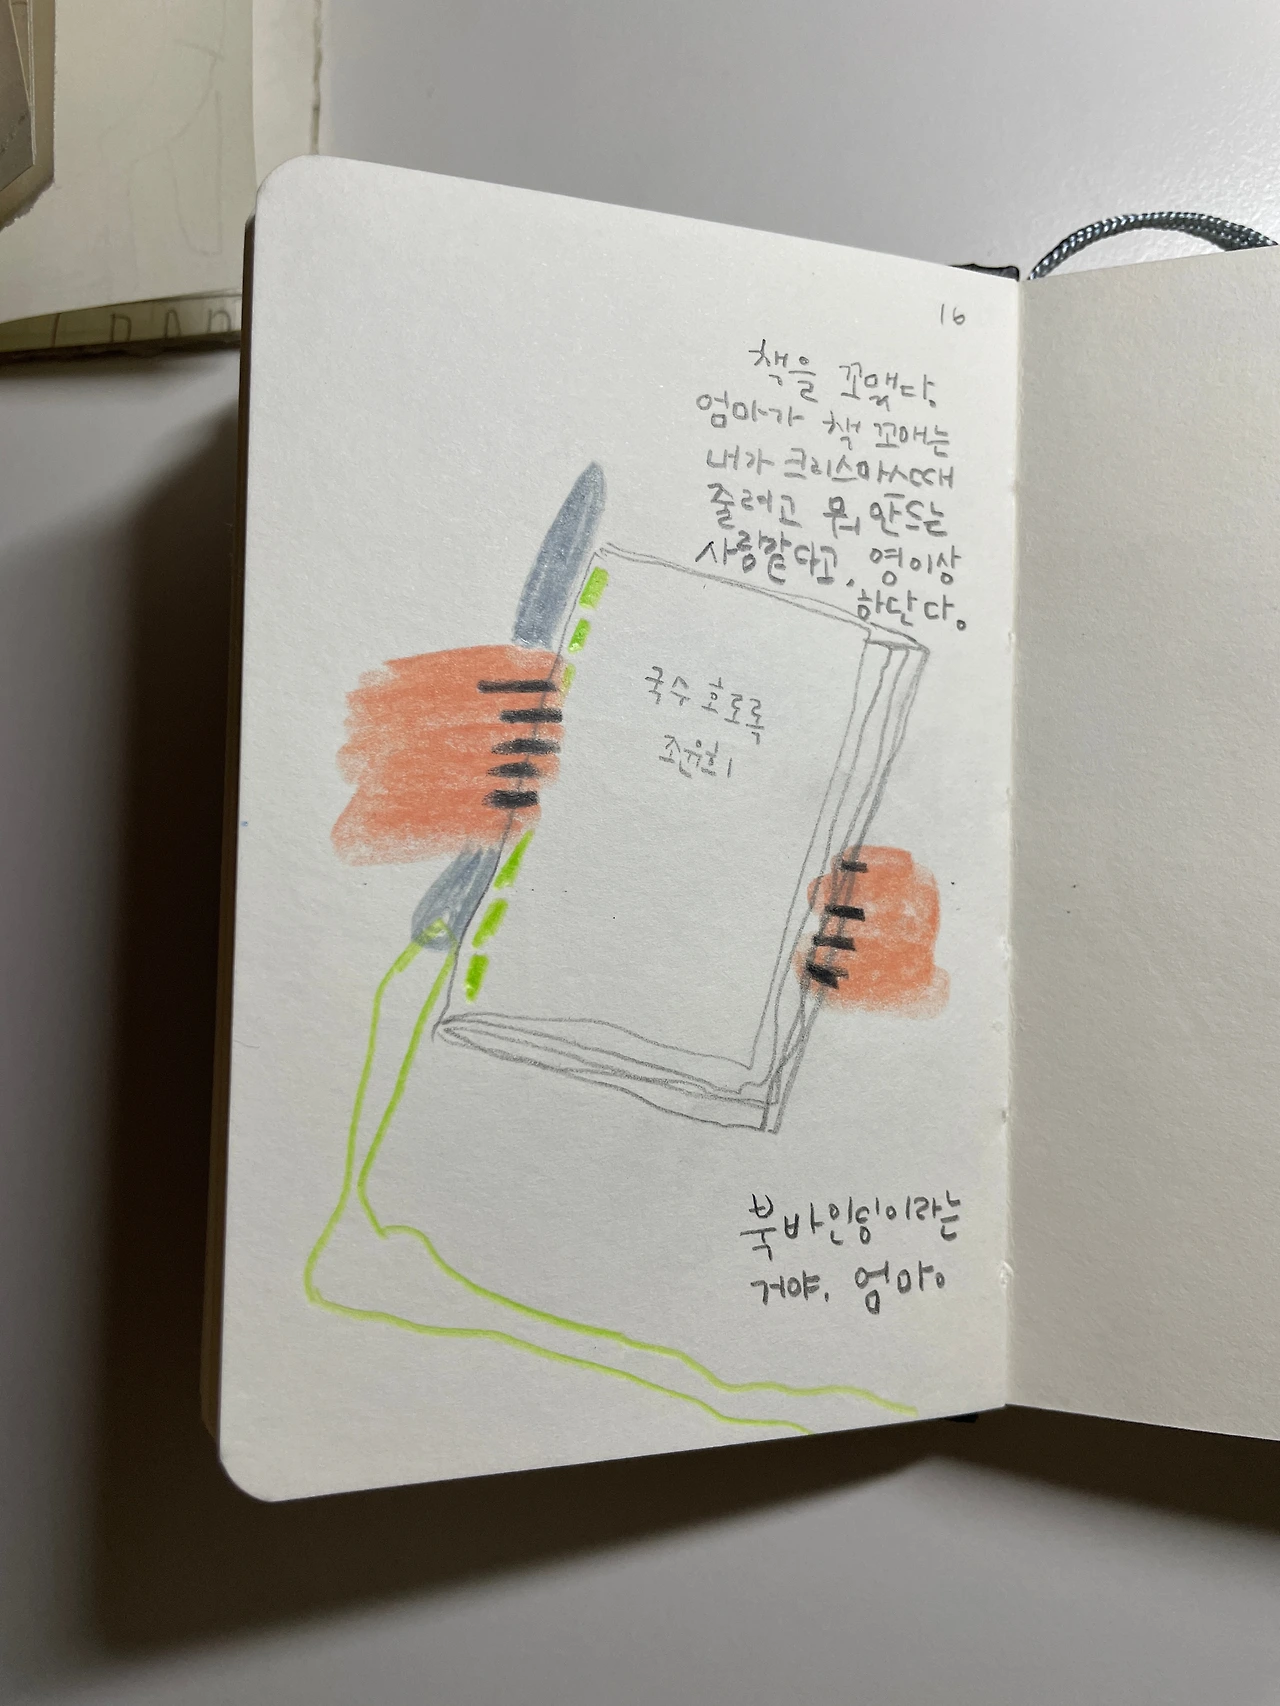 16
책을 꼬맸다.
엄마가 책 꼬매는
내가 크리스마스때
줄려고 뭐 만드는
사람같다고, 영 이상
하단다.
국수 호로록
조윤희
북바인딩이라는
거야, 엄마.